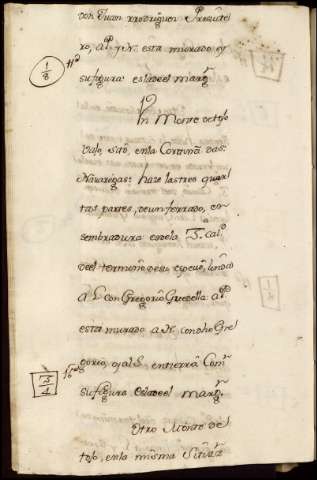 Don Juan rrodriguez Presvite
ro, al P. y N. esta murado y
su figura es la de el marg.n
1/8
Un Monte de tojo
Vale Sito, en la Cortiña das
Navarigas: haze las tres quar
tas partes, de un ferrado, en
sembradura es de la 3.a cal.d
de el termino de su especie, linda
a L con Gregorio Gresella al P.
esta murado a N. con dho Gre
gorio, y al S. en tierra Com.n
su figura es la de el marg.n
3/4
Otro Monte de
tojo, en la misma Situaz.n